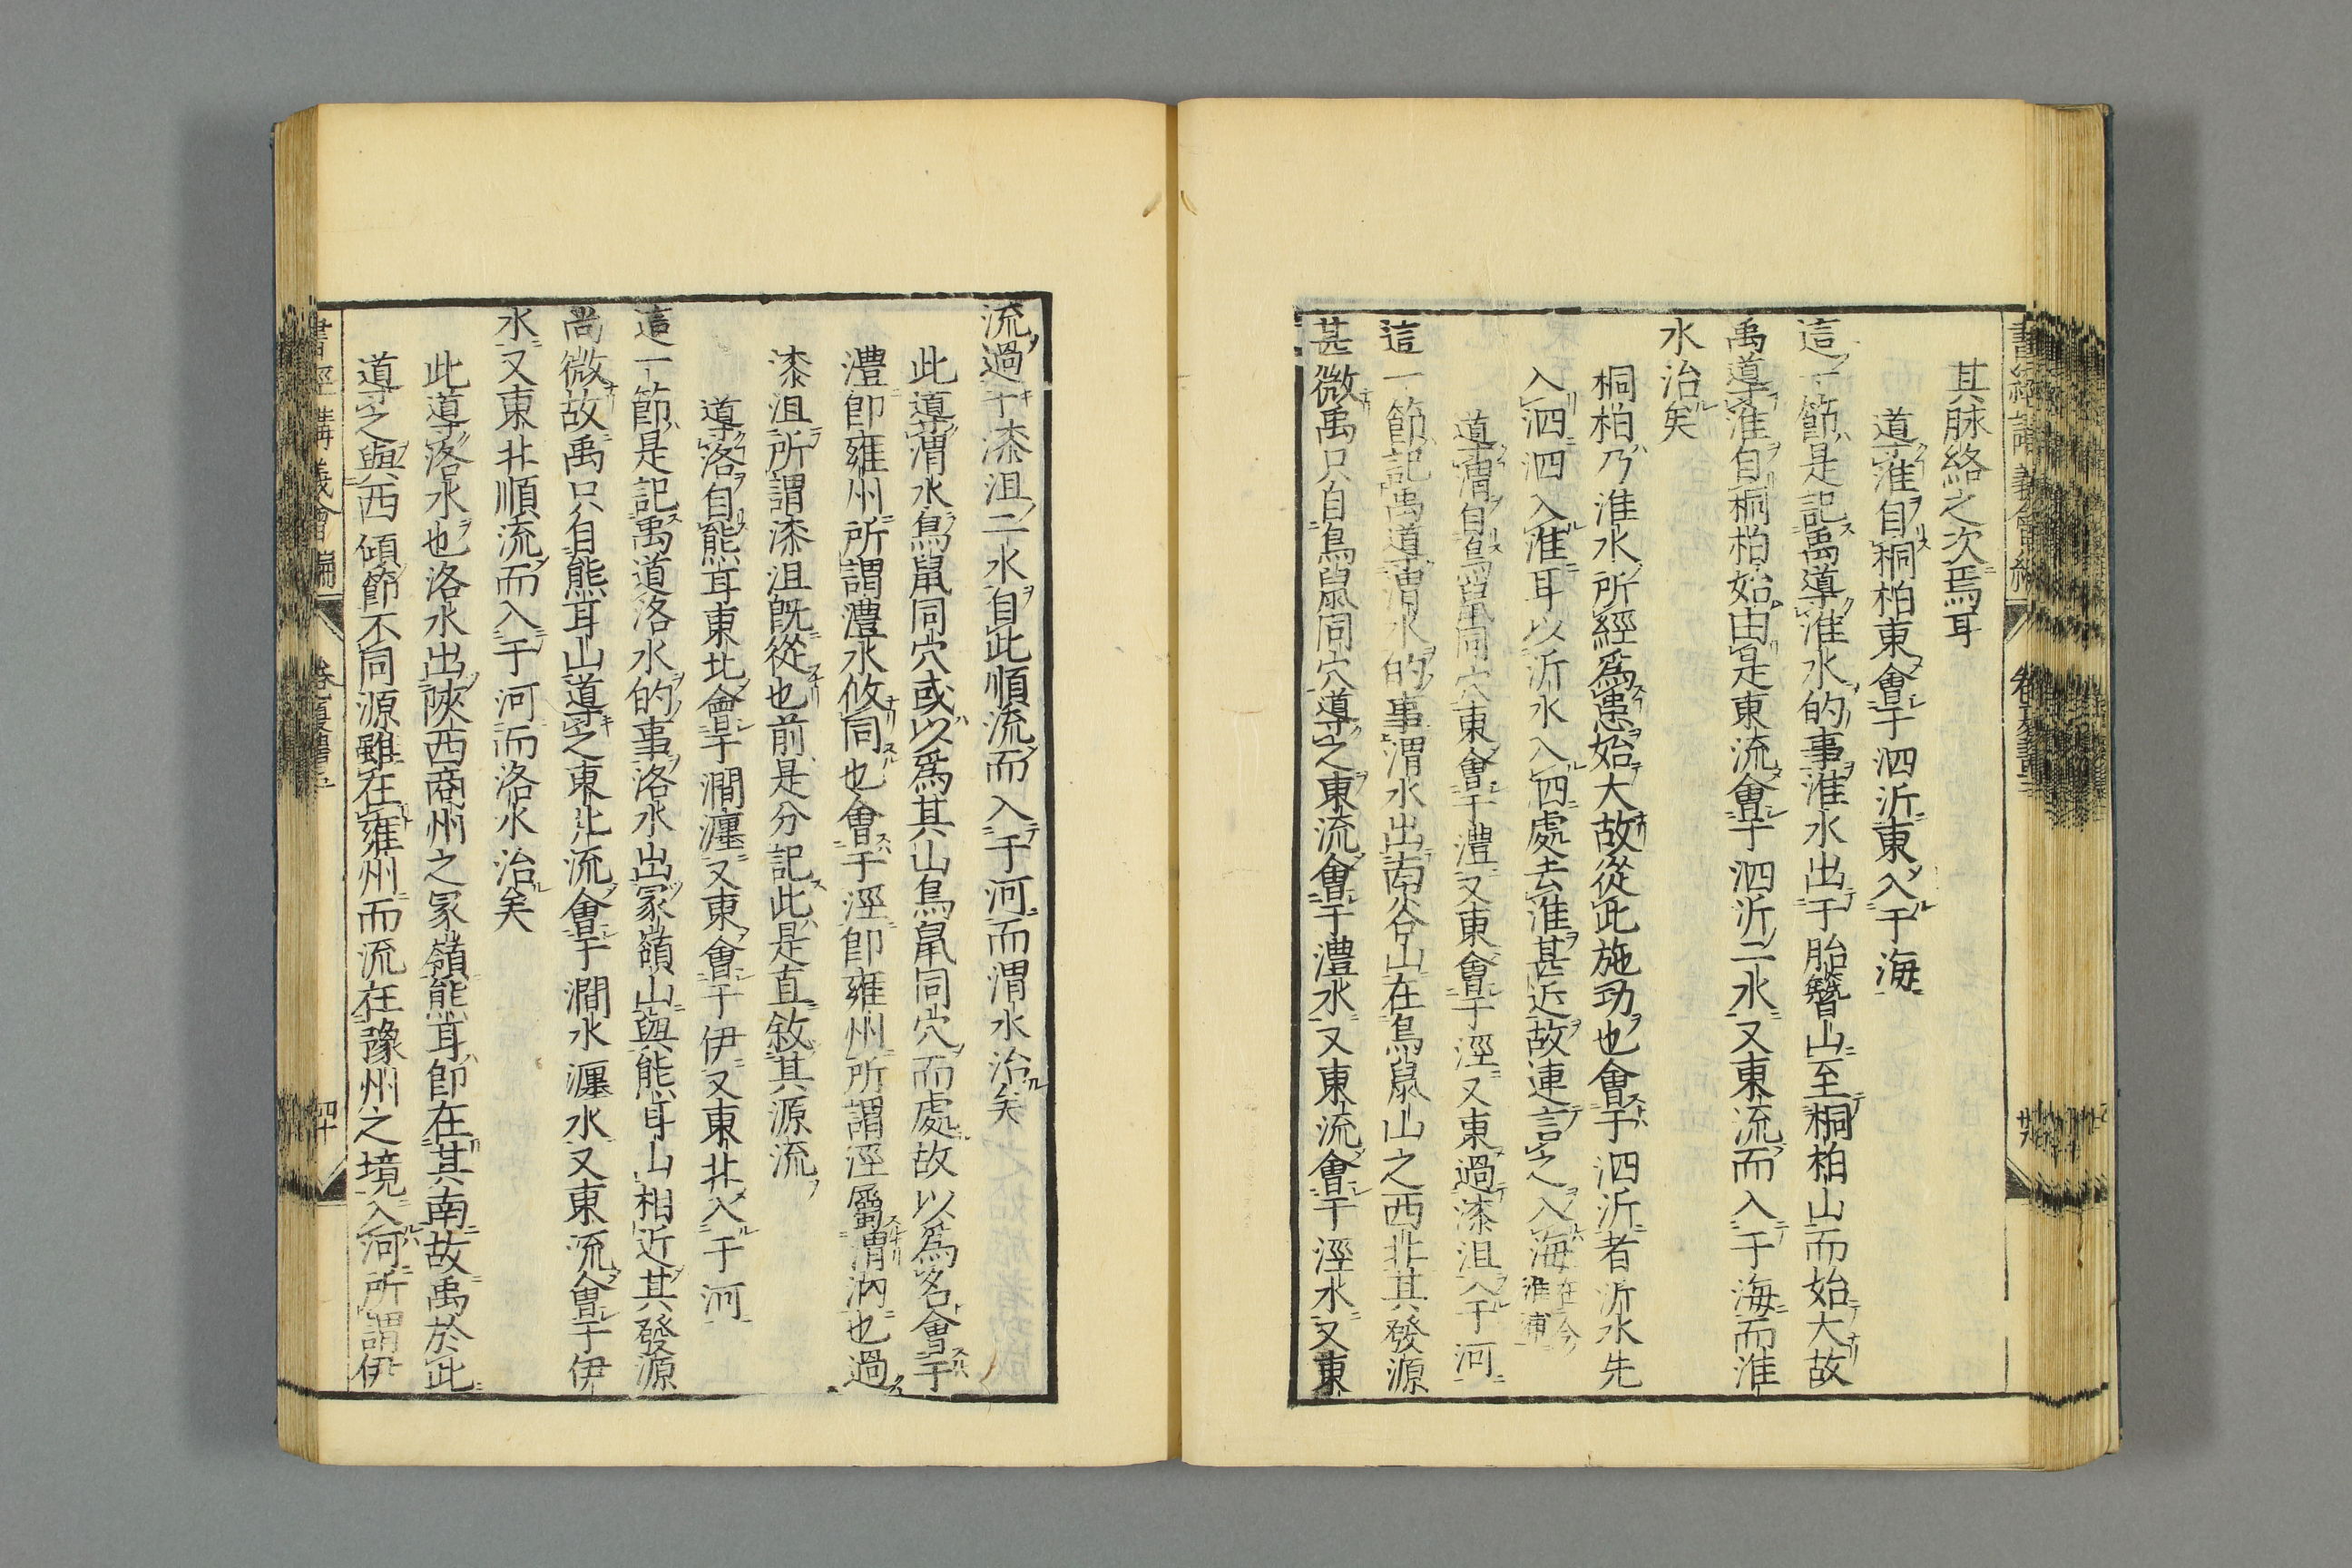 其脉絡之次焉耳
導淮自桐柏東會于泗沂東入于海
這一節是記禹導淮水的事淮水出于胎簪山至桐柏山而始大故
禹導淮自桐柏始由是東流會于泗沂二水又東流而入于海而淮
水治矣
桐柏乃淮水所經爲患始大故從此施功也會于泗沂者沂水先
入泗泗入淮耳以沂水入泗處去淮甚近故連言之入海在今淮浦
導渭自鳥鼠同穴東會于澧又東會于涇又東過漆沮入于河
這一節記禹導渭水的事渭水出南谷山在鳥鼠山之西北其發源
甚微禹只自鳥鼠同穴導之東流會于澧水又東流會于涇水又東
流過于漆沮二水自此順流而入于河而渭水治矣
此導渭水鳥鼠同穴或以爲其山鳥鼠同穴而處故以爲名會于
澧卽雍州所謂澧水攸同也會于涇卽雍州所謂涇屬渭汭也過
漆沮所謂漆沮旣從也前是分記此是直敘其源流
導洛自熊耳東北會于澗瀍又東會于伊又東北入于河
這一節是記禹道洛水的事洛水出冢嶺山與熊耳山相近其發源
尚微故禹只自熊耳山導之東北流會于澗水瀍水又東流會于伊
水又東北順流而入于河而洛水治矣
此導洛水也洛水出陝西商州之冢嶺熊耳卽在其南故禹於此
導之與西傾節不同源雖在雍州而流在豫州之境入河所謂伊
書經講義會編 卷 四十